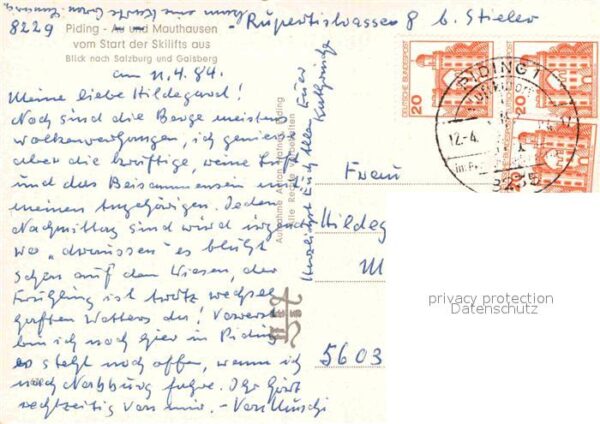 8229 - Rupertistrasse 8 b. Stieler
Piding - Au und Mauthausen
vom Start der Skilifts aus
Blick nach Salzburg und Gaisberg
am 11.4.84.
Meine liebe Hildegard!
Noch sind die Berge meistens
wolkenverhangen, ich geniesse
aber die kräftige, reine Luft
und das Beisammensein mit
meinen Angehörigen. Jeden
Nachmittag sind wir irgend-
wo "draussen" es blüht
schon auf den Wiesen, der
Frühling ist trotz wechsel
haften Wetters da! Vorerst
bin ich noch hier in Piding
es steht noch offen, wann ich
nach fahre. Ihr hört
rechtzeitig von mir. -
Herzlichst Euch allen Eure
Aufnahme Anton
Alle Rechte vorbehalten
DEUTSCHE BUNDESPOST
20
20
20
PIDING 1
12.-4.
8235
Frau
Hildeg
M
5603
privacy protection
Datenschutz